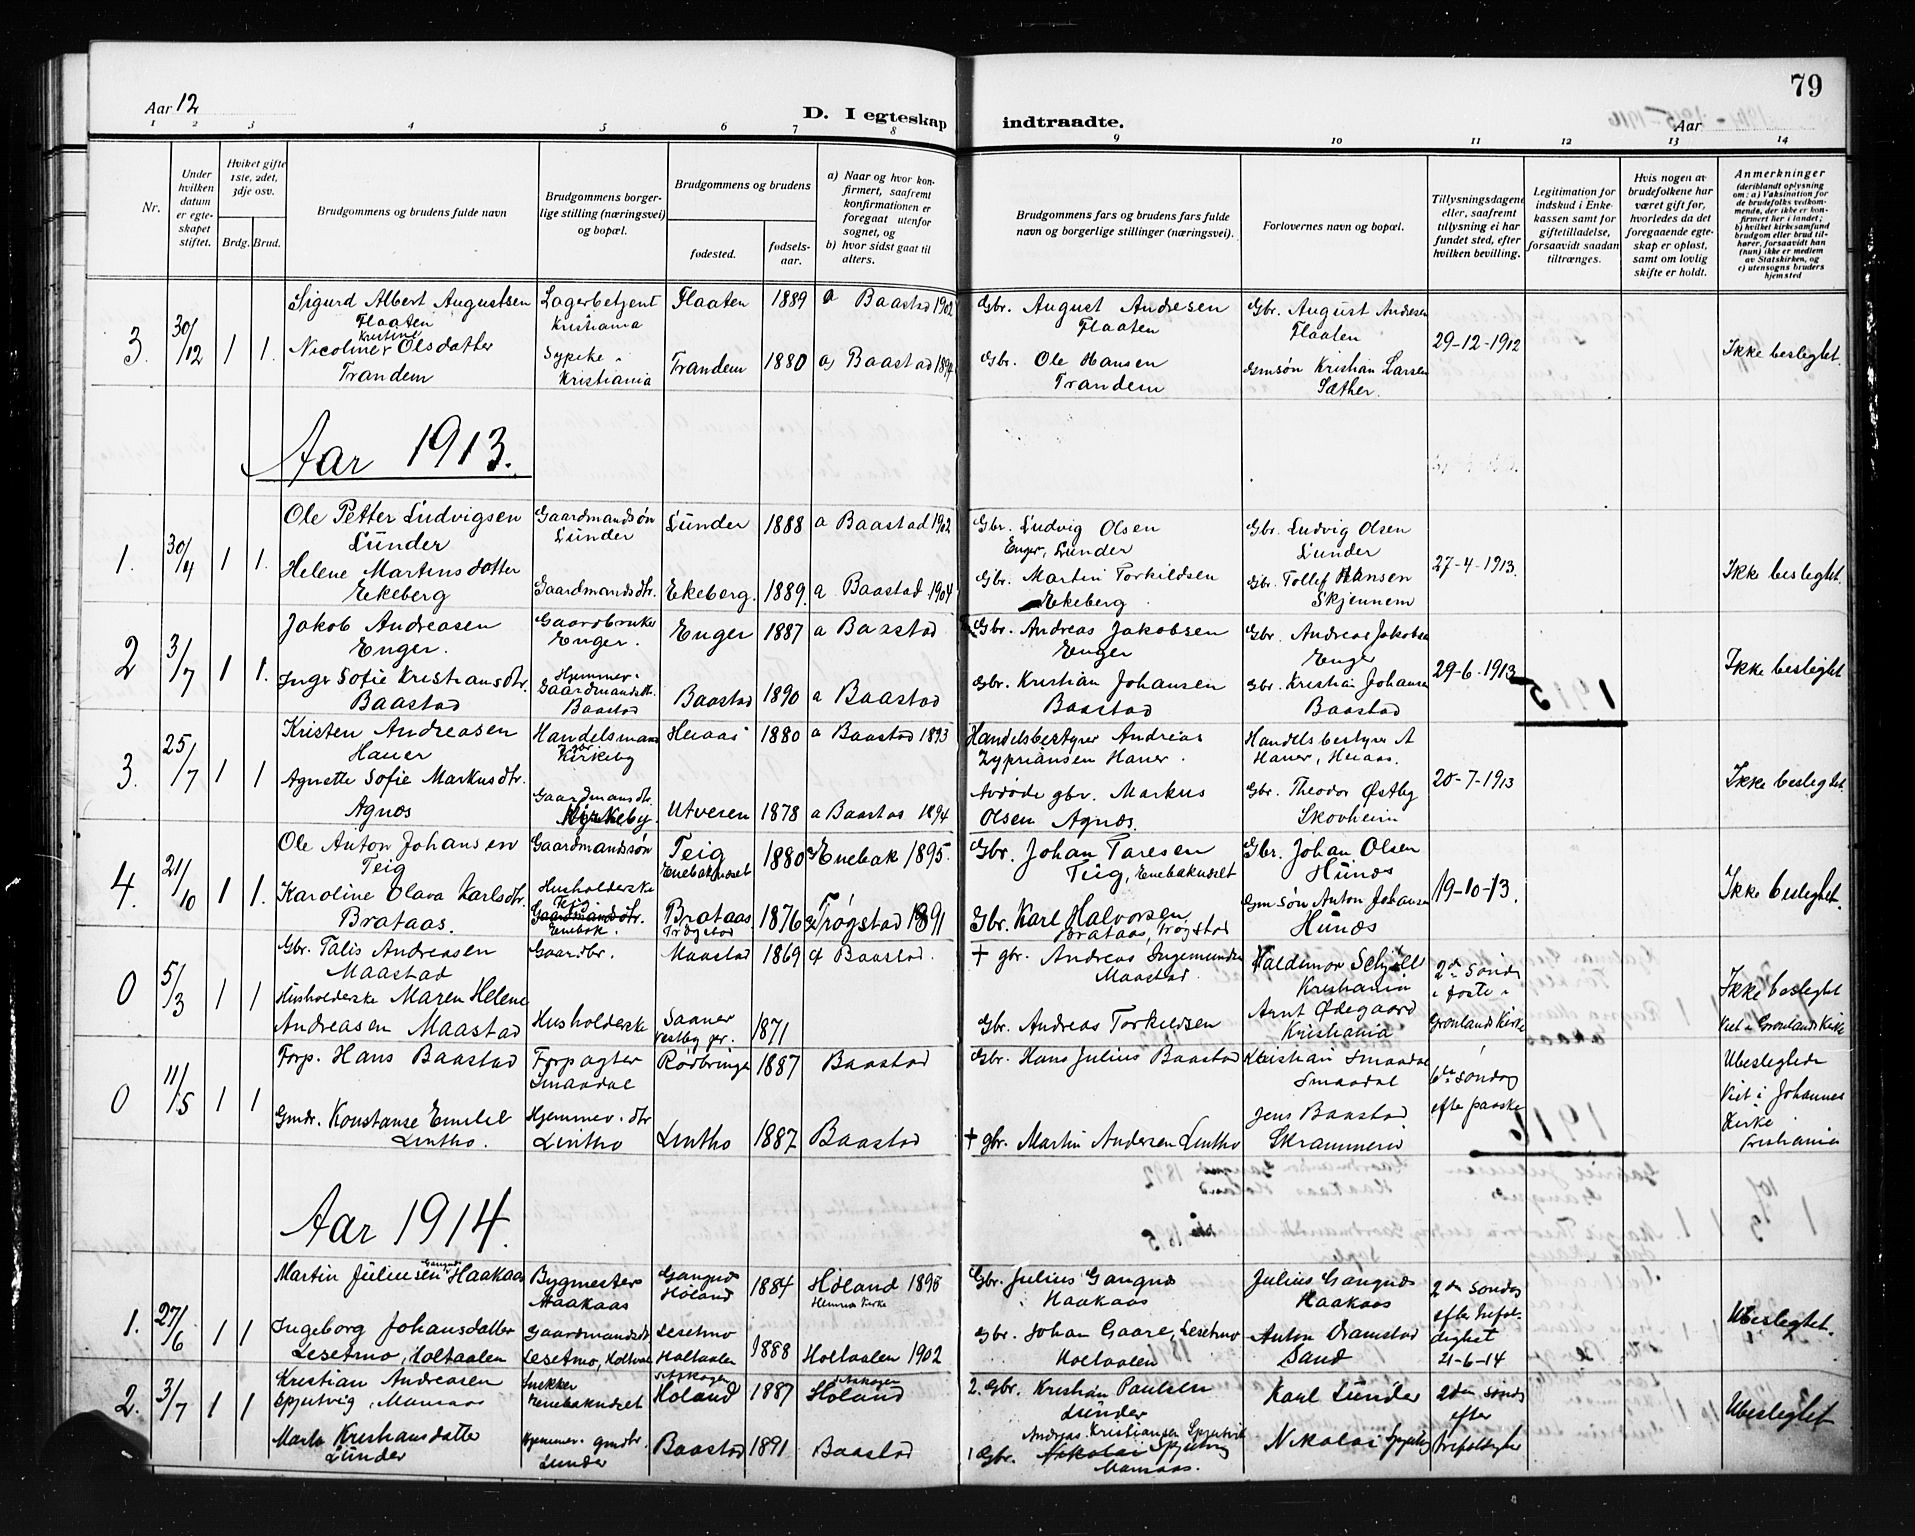 79
Aar 12
D. I egteskap indtraadte.
Aar
1 2 3 4 5 6 7 8 9 10 11 12 13 14
Nr.
Under hvilken datum er egte-skapet stiftet.
Hviket gifte 1ste, 2det, 3dje osv.
Brdg. Brud.
Brudgommens og brudens fulde navn
Brudgommens borger-lige stilling (næringsvei) og bopæl.
Brudgommens og brudens
fødested.
fødsels-aar.
a) Naar og hvor kon-firmert, saafremt konfirmationen er foregaat utenfor sognet, og
b) hvor sidst gaat til alters.
Brudgommens fars og brudens fars fulde navn og borgerlige stillinger (næringsvei).
Forlovernes navn og bopæl.
Tillysningsdagene eller, saafremt tillysning ei har fundet sted, efter hvilken bevilling.
Legitimation for indskud i Enke-kassen samt for giftetilladelse, forsaavidt saadan tiltrænges.
Hvis nogen av brudefolkene har været gift før, hvorledes da det foregaaende egte-skap er opløst, samt om lovlig skifte er holdt.
Anmerkninger
(deriblandt oplysning om: a) Vaksination for de brudefolks vedkom-mende, der ikke er kon-firmert her i landet; b) hvilket kirkesamfund brudgom eller brud til-hører, forsaavidt han (hun) ikke er medlem av Statskirken, og c) utensogns bruders hjemsted
3. 30/12 1 1. Sigurd Albert Augustsen Flaaten Lagerbetjent Kristiania Flaaten 1889 a Baastad 1902 Gbr. August Andresen Flaaten Gbr. August Andresen Flaaten 29-12-1912 Ikke beslegtet.
Nicoline Kristine Olsdatter Trandem Sypike Kristiania Trandem 1880 a) Baastad Gbr. Ole Hansen Trandem Gmsøn Kristian Larsen Sæther.
Aar 1913.
1. 30/4 1 1. Ole Petter Ludvigsen Lunder Gaardmandsøn Lunder Lunder 1888 a Baastad 1902 Gbr. Ludvig Olsen Enger, Lunder Gbr. Ludvig Olsen Lunder 27-4-1913. Ikke beslegtet.
Helene Martinsdatter Ekeberg Gaardmandsdtr. Ekeberg. 1889. a Baastad 1904 Gbr. Martin Torkildsen Ekeberg. Gbr. Tollef Hansen Skjennem
2 3/7 1 1. Jakob Andreasen Enger. Gaardbruker Enger. Enger 1887 a Baastad Gbr. Andreas Jakobsen Enger Gbr. Andreas Jakobsen Enger 29-6-1913 Ikke beslegtet
Inge Sofie Kristiansdtr. Baastad Hjemmev. Gaardmandsdtr. Baastad Baastad 1890 a Baastad Gbr. Kristian Johansen Baastad Gbr. Kristian Johansen Baastad
3. 25/7 1 1 Kristen Andreasen Haner Handelsmand Kirkeby 1880 a Baastad 1895 Handelsbestyrer Andreas Zypriansen Haner. Handelsbestyrer A Haner, 20-7-1913 Ikke beslegtet.
Agnette Sofie Markusdtr. Agnæs Gaardmandsdtr. Utvesen 1878 a Baastad 1894 Avdøde gbr. Markus Olsen Agnæs. Gbr. Theodor Østby Skovheim
4. 21/10 1 1. Ole Anton Johansen Teig Gaardmandssøn Teig Enebaknæset 1880 a Enebak 1895. Gbr. Johan Taresen Teig, Enebaknæset Gbr. Johan Olsen Hunæs 19-10-13. Ikke beslegtet.
Karoline Olava Karlsdtr. Brataas. Husholderske Teig Gaardmandsdtr. Enebak. Brataas Trøgstad 1876 a Trøgstad 1891 Gbr. Karl Halvorsen Brataas, Trøgstad Gmsøn Anton Johansen Hunæs
0 5/3 1 1 Gbr. Talis Andreasen Maastad Gaardbr. Maastad 1869 a Baastad. † gbr. Andreas Ingemundsen Maastad Valdemar Kristiania 2den sønd i faste i Grønlands Kirke Ikke beslegtet Viet i Grønlands Kirke
Husholderske Maren Helene Andreasen Maastad Husholderske Saaner Vestby 1871 Gbr. Andreas Torkildsen Arnt Ødegaard Kristiania
0 11/5 1 1 Forp. Hans Baastad Forpagter Smaadal 1887 Baastad Gbr. Hans Julius Baastad Kristian Smaadal Smaadal 6te søndag efter paaske Ubeslegtede Viet i Johannes Kirke Kristiania
Gmdr. Konstanse Emilie Lintho. Hjemmev. dtr Lintho Lintho 1887 Baastad † gbr. Martin Andersen Lintho Jens Baastad
Aar 1914.
1. 27/6 1 1 Martin Juliussen Gangnæs Haakaas Bygmester Haakaas Gangnæs Høland 1884 Høland 1898 Hemnes Kirke Gbr. Julius Gangnæs Haakaas Julius Gangnæs Haakaas 2den søndag efter trefoldighet 21-6-14 Ubeslegtet.
Ingeborg Johansdatter Lesetmo, Holtaalen Gaardmandsdtr Lesetmo, Lesetmo Holtaalen 1888 Holtaalen 1902 Gbr. Johan Gaare, Lesetmo Holtaalen Anton Sand
2. 3/7 1 1 Kristian Andreasen Spjutvig, Snekker Enebaknæset Høland 1887 Høland 2. Gbr. Kristian Paulsen Lunder Karl Lunder 2den sønd efter trefoldighet Ubeslegtet
Marta Kristiansdatter Lunder Hjemmev. gmdtr. Lunder Baastad 1891 Baastad 1 Gbr. Andreas Kristiansen Spjutvik Nikolai Spjutvig Nikolai Spjutvig
1915
1916